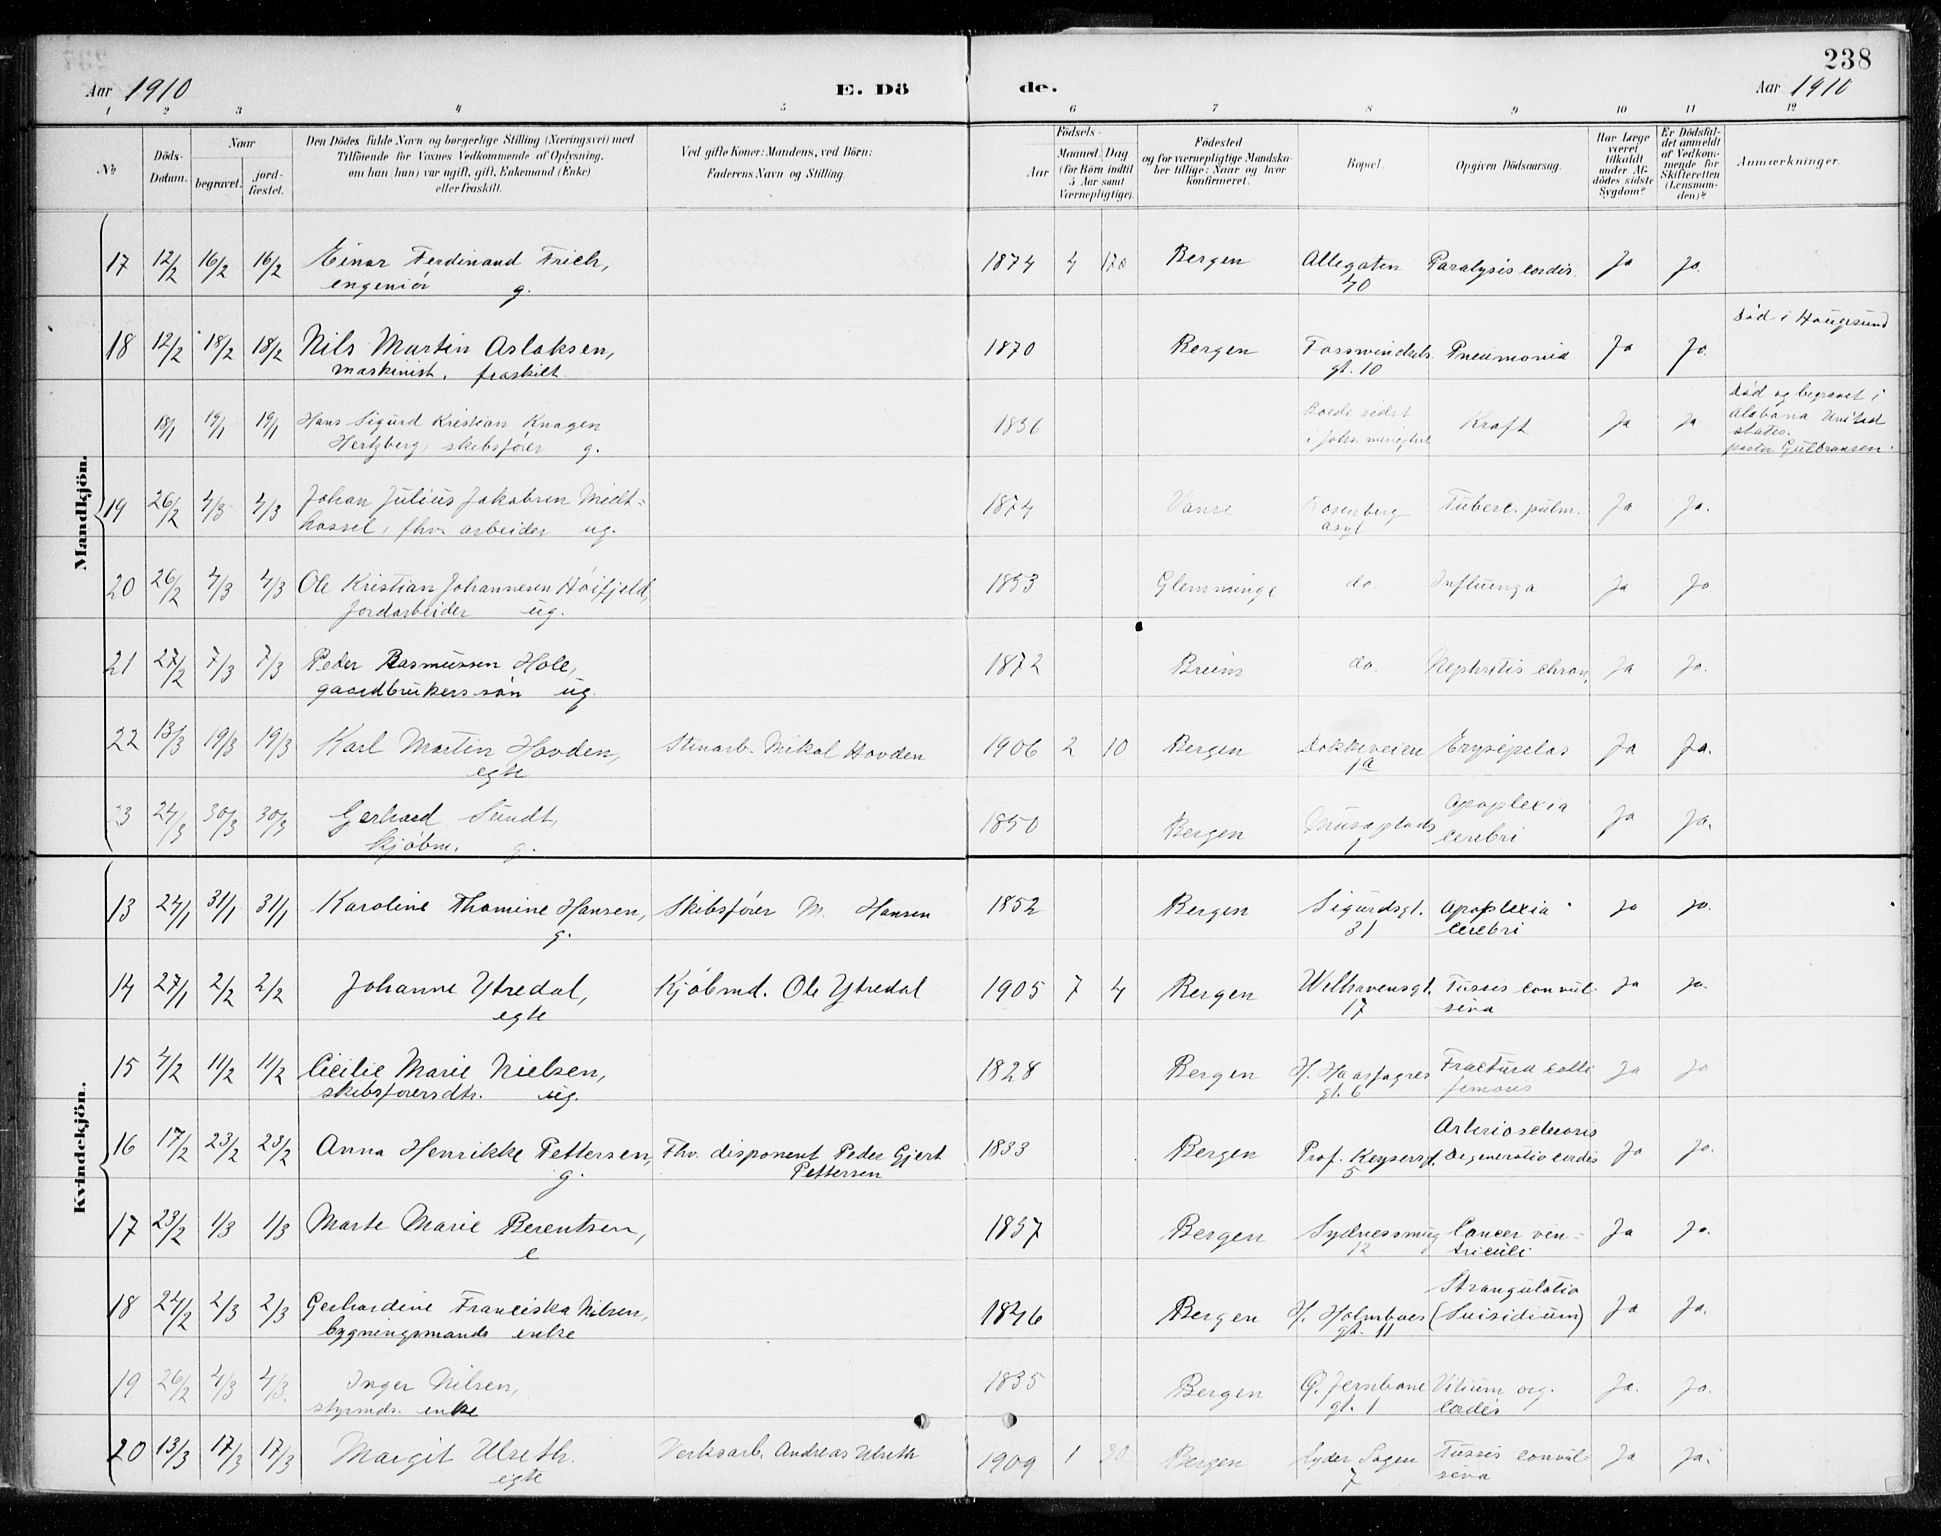 238
Aar 1910 E. Dö de. Aar 1910
1 2 3 4 5 6 7 8 9 10 11 12
№ Döds-Datum. Naar begravet. jord-fæstet. Den Dödes fulde Navn og borgerlige Stilling (Næringsvei) med Tilföiende for Voxnes Vedkommende af Oplysning, om han (hun) var ugift, gift, Enkemand (Enke) eller fraskilt. Ved gifte Koner: Mandens, ved Börn: Faderens Navn og Stilling. Födsels- Aar Maaned Dag (for Börn indtil 5 Aar samt Værnepligtige). Födested og for værnepligtige Mandska-ber tillige: Naar og hvor konfirmeret. Bopæl. Opgiven Dödsaarsag. Har Læge været tilkaldt under Af-dödes sidste Sygdom? Er Dödsfal-det anmeldt af Vedkom-mende for Skifteretten (Lensman-den)? Anmærkninger.
Mandkjön.
17 12/2 16/2 16/2 Einar Ferdinand Frich, 1874 4 Bergen Allegaten Paralysis cordis. Ja Ja.
engeniör g. 40
18 12/2 18/2 18/2 Nils Martin Aslaksen, 1870 Bergen Pneumonia Ja Ja. Död i Haugesund
maskinist. fraskilt. gt. 10
18/1 19/1 19/1 Hans Sigurd Kristian Knagen 1836 Boede sidst Kraft Ja Ja Död og begravet i
Hertzberg, skibsförer g. i Joh. Alabama United
states.
pastor Gulbransen.
19 26/2 4/3 4/3 Johan Julius Jakobsen Midt- 1874 Vanse Rosenberg Tuberc. pulm. Ja Ja.
hassel, fhv. arbeider ug. asyl
20 26/2 4/3 4/3 Ole Kristian Johannesen Höifjeld, 1853 Glemminge do. Influenza Ja Ja
Jordarbeider ug.
21 27/2 7/3 7/3 Peder Rasmussen Hole, 1872 Breim do. Nephritis chron. Ja Ja.
gaardbrukers sön ug.
22 13/3 19/3 19/3 Karl Martin Hovden, Stenarb. Mikal Hovden 1906 2 10 Bergen Dokkeveien Erysipelas Ja Ja.
egte 1a
23 24/3 30/3 30/3 Gerhard Sundt, 1850 Bergen Museplads Apoplexia Ja Ja.
kjöbm. g. 1 cerebri
Kvindekjön.
13 24/1 31/1 31/1 Karoline Thomine Hansen, Skibsförer M. Hansen 1852 Bergen Sigurdsgt. Apoplexia Ja Ja.
g. 31 cerebri
14 27/1 2/2 2/2 Johanne Ytredal, Kjöbmd. Ole Ytredal 1905 7 4 Bergen Welhavensgt. Tussis convul- Ja Ja.
egte 17 siva
15 4/2 11/2 11/2 Cicilie Marie Nielsen, 1828 Bergen H. Haarfagres Fractura colli Ja Ja
skibsförersdtr. ug. gt. 6 femoris
16 17/2 23/2 23/2 Anna Henrikke Pettersen, Fhv. disponent Peder Gjert 1833 Bergen Prof. Keysersgt. Arteriosclerosis Ja Ja.
g. Pettersen 5 Degeneratio cordis
17 23/2 1/3 1/3 Marte Marie Berentsen, 1837 Bergen Sydnessmug Cancer ven- Ja Ja.
e 12 triculi
18 24/2 2/3 2/3 Gerhardine Franciska Nilsen, 1846 Bergen H. Holmboes Strangulatio Ja Ja.
bygningsmands enke gt. 11 (Suisidium)
19 26/2 4/3 4/3. Inger Nilsen, 1835 Bergen Ö. Jernbane Vitium org. Ja. Ja.
styrmds. enke gt. 1 cordis
20 13/3 17/3 17/3 Margit Ulseth. Verksarb. Andreas Ulseth 1909 1 30 Bergen Lyder Sagen Tussis convul- Ja Ja.
egte 7 siva